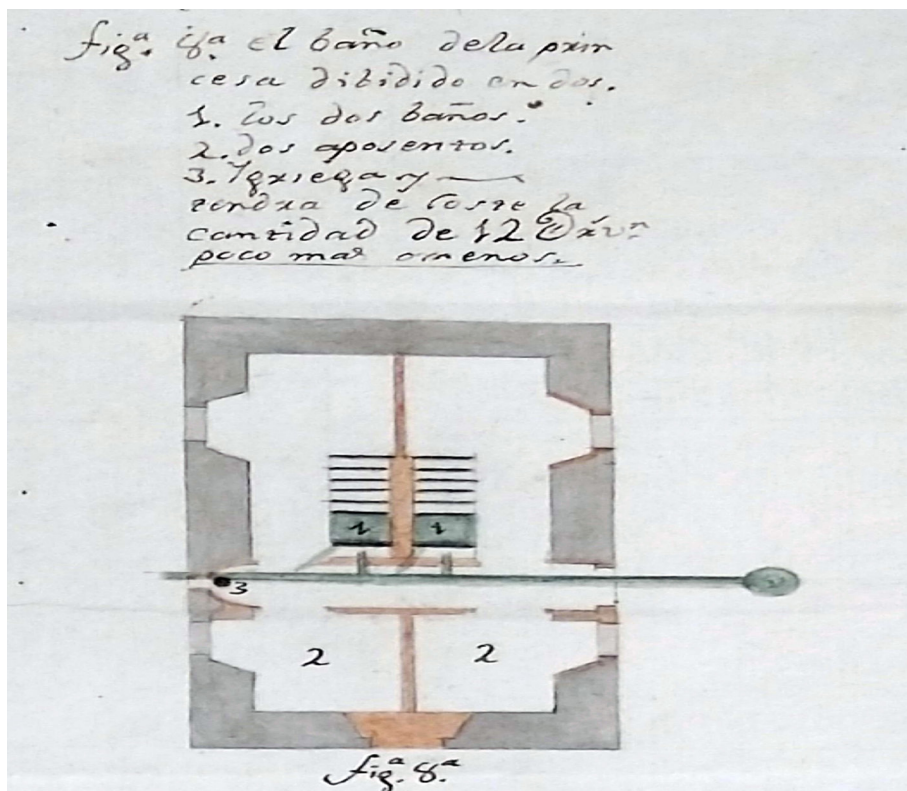 figª. 8ª El baño dela prin
cesa dibidido en dos.
1. Los dos baños.
2. dos aposentos.
3. Ygriega y
tendra de coste la
cantidad de 12
poco mas omenos.
1 1
3
2 2
figª. 8ª